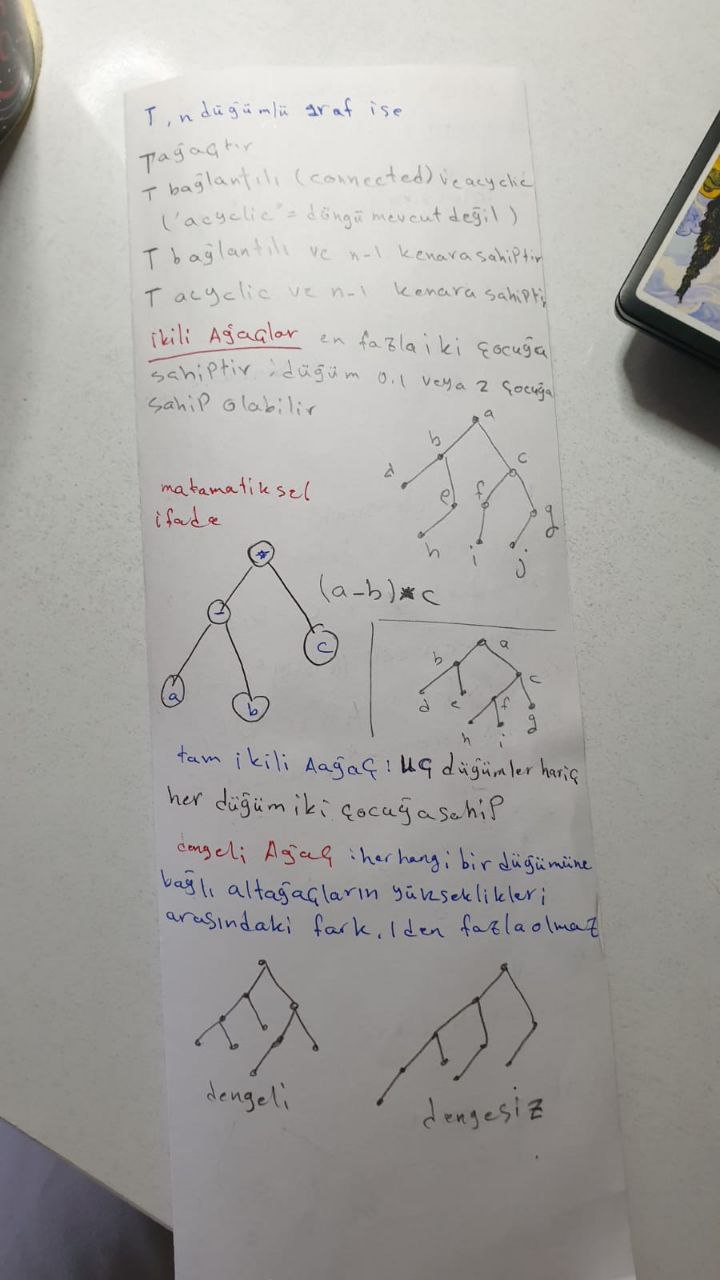 T, n düğümlü graf ise
T ağaçtır
T bağlantılı (connected) ve acyclic
("acyclic" = döngü mevcut değil)
T bağlantılı ve n-1 kenara sahiptir
T acyclic ve n-1 kenara sahipti
ikili Ağaçlar en fazla iki çocuğa
sahiptir : düğüm 0.1 veya 2 çocuğa
sahip olabilir
a
b
c
d
e
f
g
h
i
j
matamatiksel
ifade
*
(a-b)*c
-
c
a
b
a
b
c
d
e
f
g
h
i
tam ikili Aağaç : uç düğümler hariç
her düğüm iki çocuğa sahip
dengeli Ağaç : herhangi bir düğümüne
bağlı altağaçların yükseklikleri
arasındaki fark, 1den fazla olmaz
dengeli
dengesiz